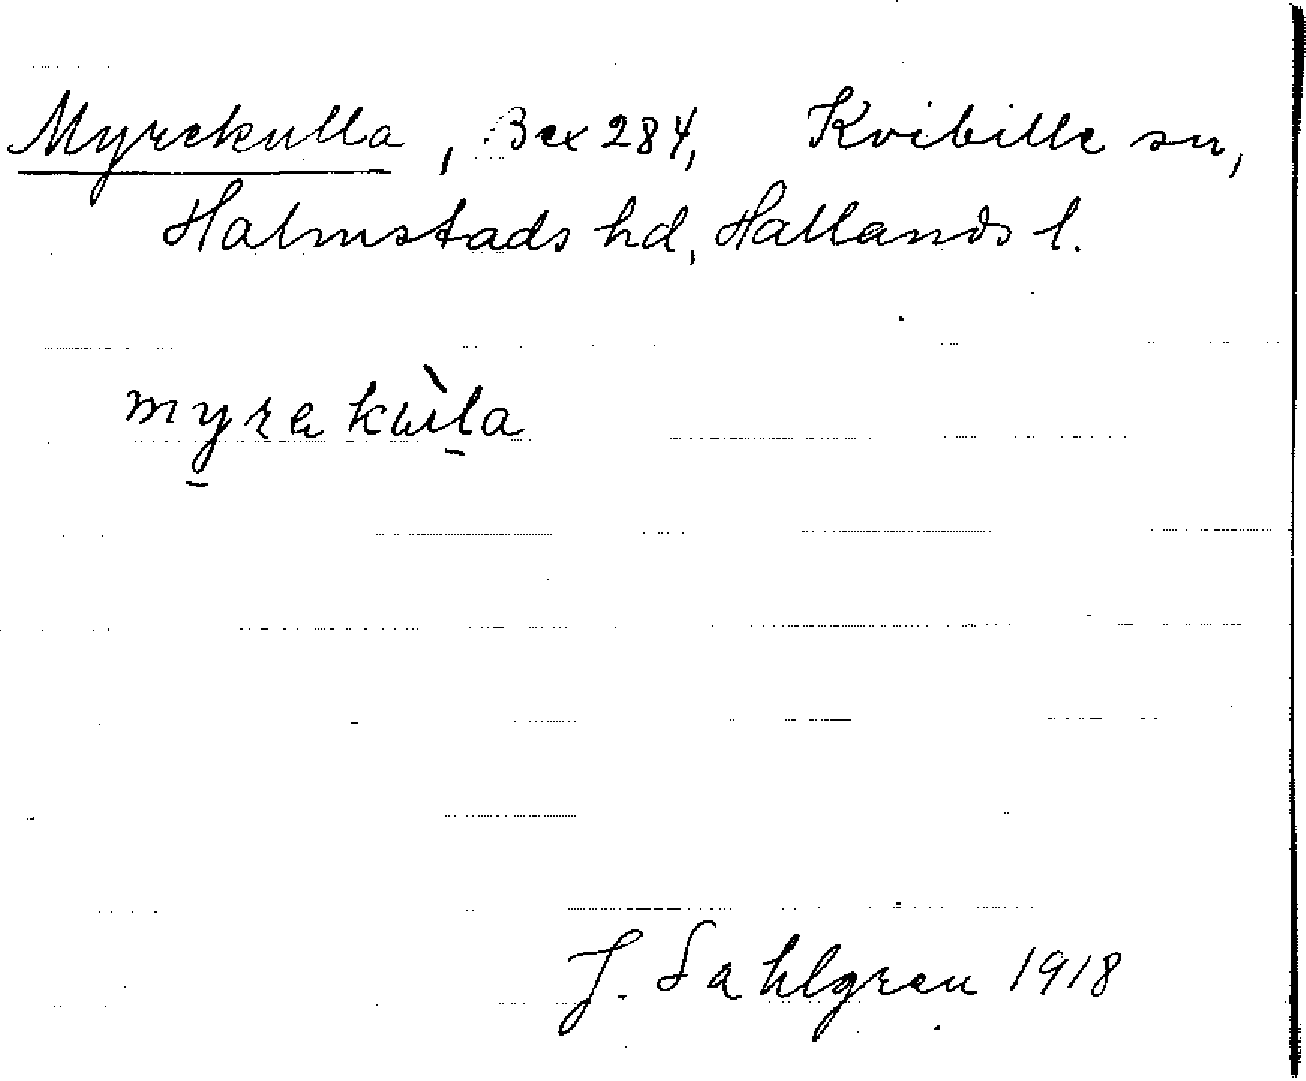 Myrekulla, Bex 284, Kvibille sn,
Halmstads hd, Hallands l.
myrakùla
J. Sahlgren 1918